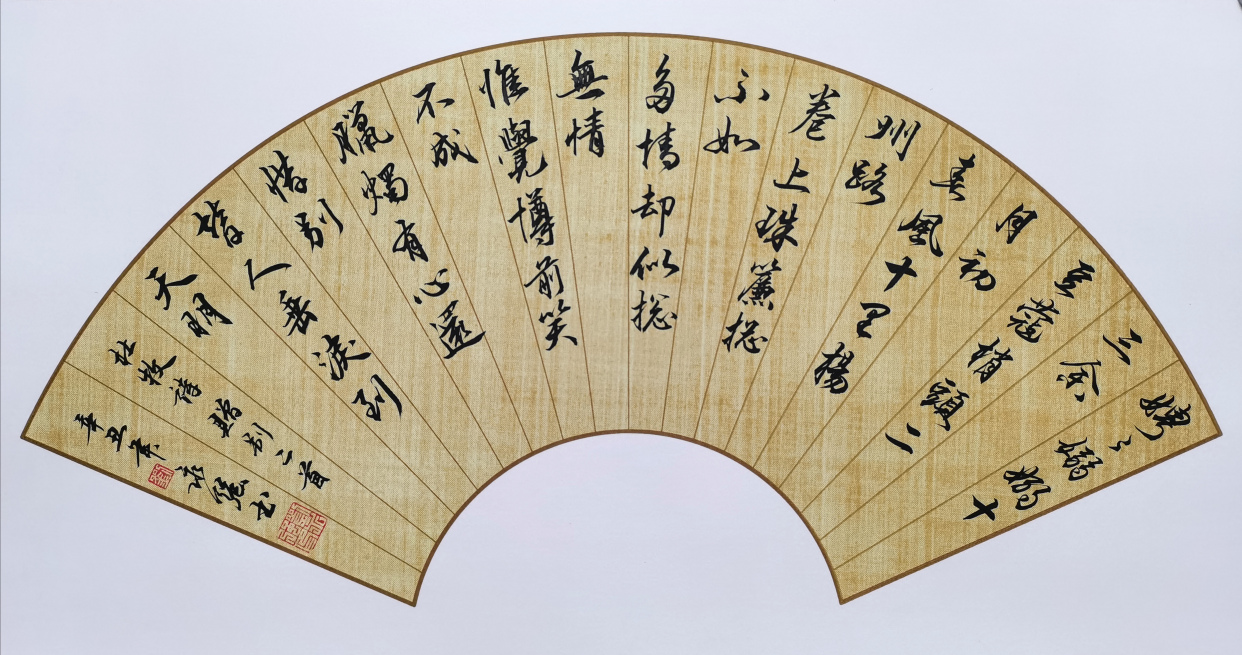 娉々嫋嫋十
三余
豆蔻梢頭二
月初
春風十里楊
州路
卷上珠簾捴
不如
多情却似捴
無情
惟覺樽前笑
不成
臘燭有心還
惜别
替人垂淚到
天明
杜牧詩贈别二首
辛丑年 书